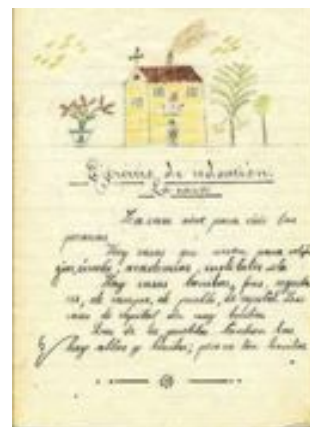 Ejercicio de redacción.
La casa
La casa sirve para vivir las
personas.
Hay casas que sirven para
academias,
Hay casas bonitas, feas,
de campo, de pueblo, de capital. Las
casas de capital son muy bonitas.
Las de los pueblos también las
hay altas y bonitas; pero no tan bonitas